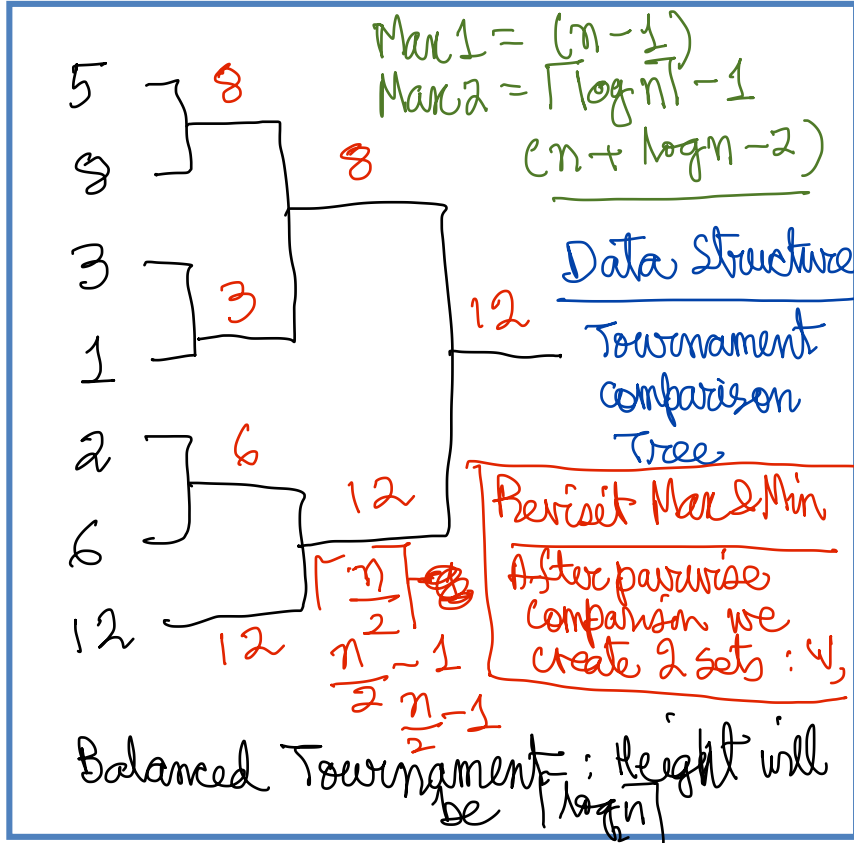 Max 1 = (n - 1)
Max 2 = ⌈log n⌉ - 1
(n + log n - 2)
5
8
8
8
3
3
1
12
2
6
6
12
12
12
Data Structure
Tournament
comparison
Tree
Revisit Max & Min
After pairwise
comparison we
create 2 sets : W,
⌈n/2⌉
n/2 - 1
n/2 - 1
Balanced Tournament : Height will
be ⌈log₂n⌉